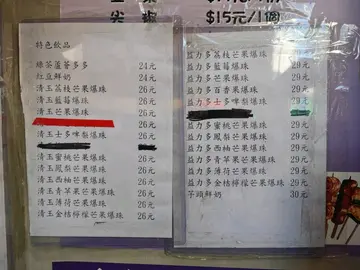 $15元/1個
特色飲品
綠茶蘆薈多多 24元
紅豆鮮奶 24元
清玉荔枝芒果爆珠 26元
清玉藍莓爆珠 26元
清玉芒果爆珠 26元
清玉士多啤梨爆珠 26元
清玉蜜桃芒果爆珠 26元
清玉鳳梨芒果爆珠 26元
清玉西柚芒果爆珠 26元
清玉青苹果芒果爆珠 26元
清玉薄荷芒果爆珠 26元
清玉金桔檸檬芒果爆珠 26元
益力多荔枝芒果爆珠 29元
益力多藍莓爆珠 29元
益力多芒果爆珠 29元
益力多百香果爆珠 29元
益力多士多啤梨爆珠 29元
益力多蜜桃芒果爆珠 29元
益力多鳳梨芒果爆珠 29元
益力多西柚芒果爆珠 29元
益力多青苹果芒果爆珠 29元
益力多薄荷芒果爆珠 29元
益力多金桔檸檬芒果爆珠 29元
芋頭鮮奶 30元